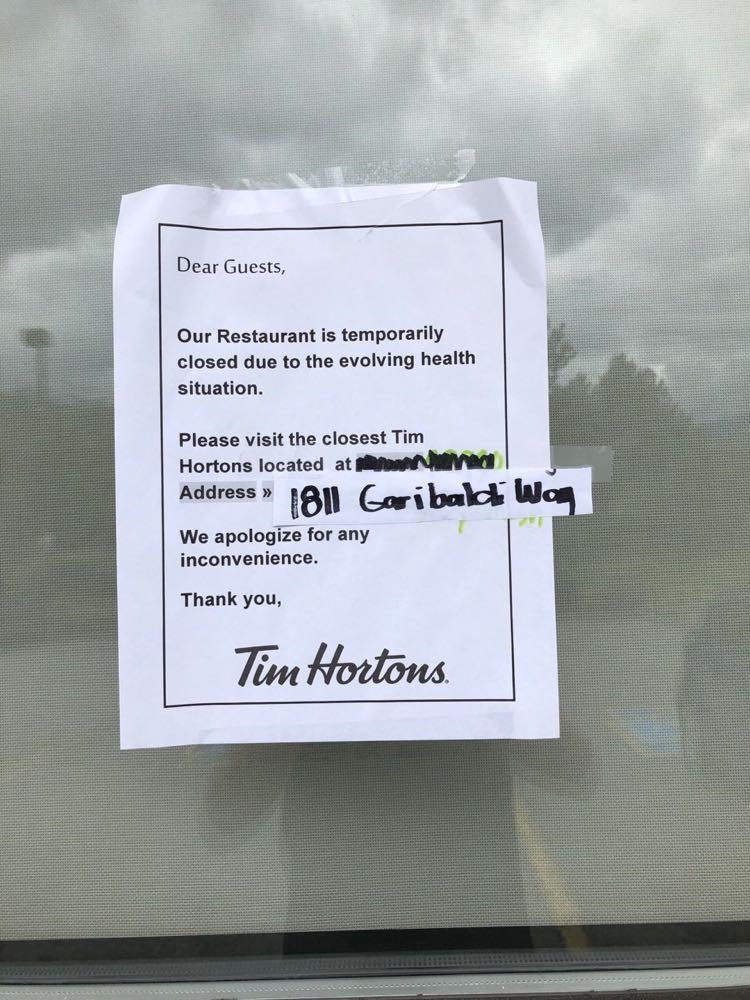 Dear Guests,
Our Restaurant is temporarily
closed due to the evolving health
situation.
Please visit the closest Tim
Hortons located at
Address »
1811 Garibaldi Way
We apologize for any
inconvenience.
Thank you,
Tim Hortons.